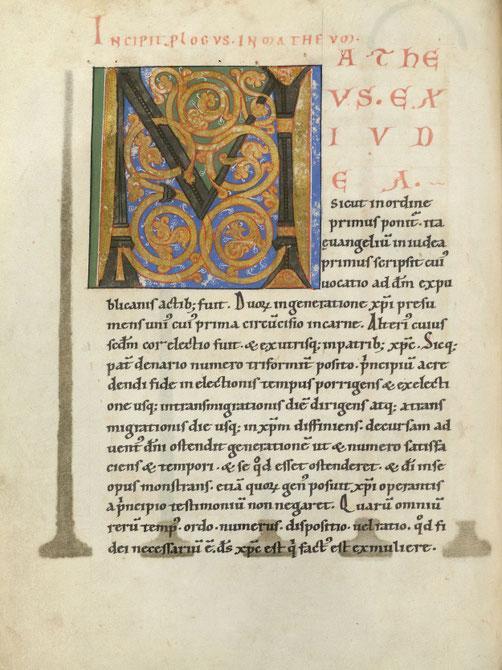 INCIPIT PLOGUS IN MATHEUM.
M ATHE
VS. EX
IVD
EA.
sicut in ordine
primus ponit. ita
euangeliũ in iudea
primus scripsit. cui'
uocatio ad dm̃ ex pu
blicanis actib; fuit. Duorꝝ in generatione xp̃i presu
mens. uni' cui' prima circũcisio in carne. Alteri' cuius
scdm̃ cor electio fuit. & ex utrisq; in patrib; xp̃c. Sicq;
denario numero triformit posito. p̃ncipiũ a cre
dendi fide in electionis tempus porrigens & ex electi
one usq; in transmigrationis diẽ dirigens atq; a trans
migrationis die usq; in xp̃m diffiniens. decursam ad
uent' dñi ostendit generationẽ ut & numero satisfa
ciens & tempori. & se qd̃ esset ostenderet. & di in se
opus monstrans. etiã quorꝝ gen' posuit xp̃i operantis
a p̃ncipio testimoniũ non negaret. Quarũ omniũ
rerũ temp'. ordo. numerus. dispositio uel ratio. qd̃ fi
dei necessariũ ẽ. ds̃ xp̃c est. q̇ fact' est ex muliere.